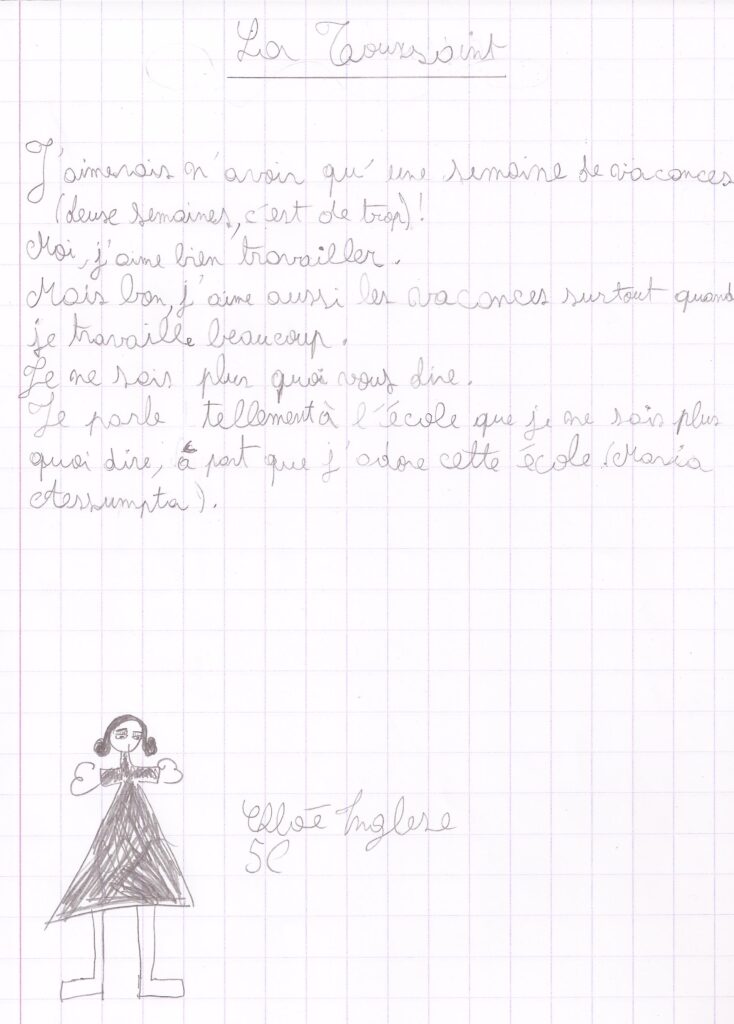 La Toussaint
J'aimerais n'avoir qu'une semaine de vacances
(deuse semaines, c'est de trop)!
Moi, j'aime bien travailler.
Mais bon, j'aime aussi les vacances surtout quand
je travaille beaucoup.
Je ne sais plus quoi vous dire.
Je parle tellement à l'école que je ne sais plus
quoi dire, à part que j'adore cette école (Maria
Assumpta).
Chloé Inglese
5C